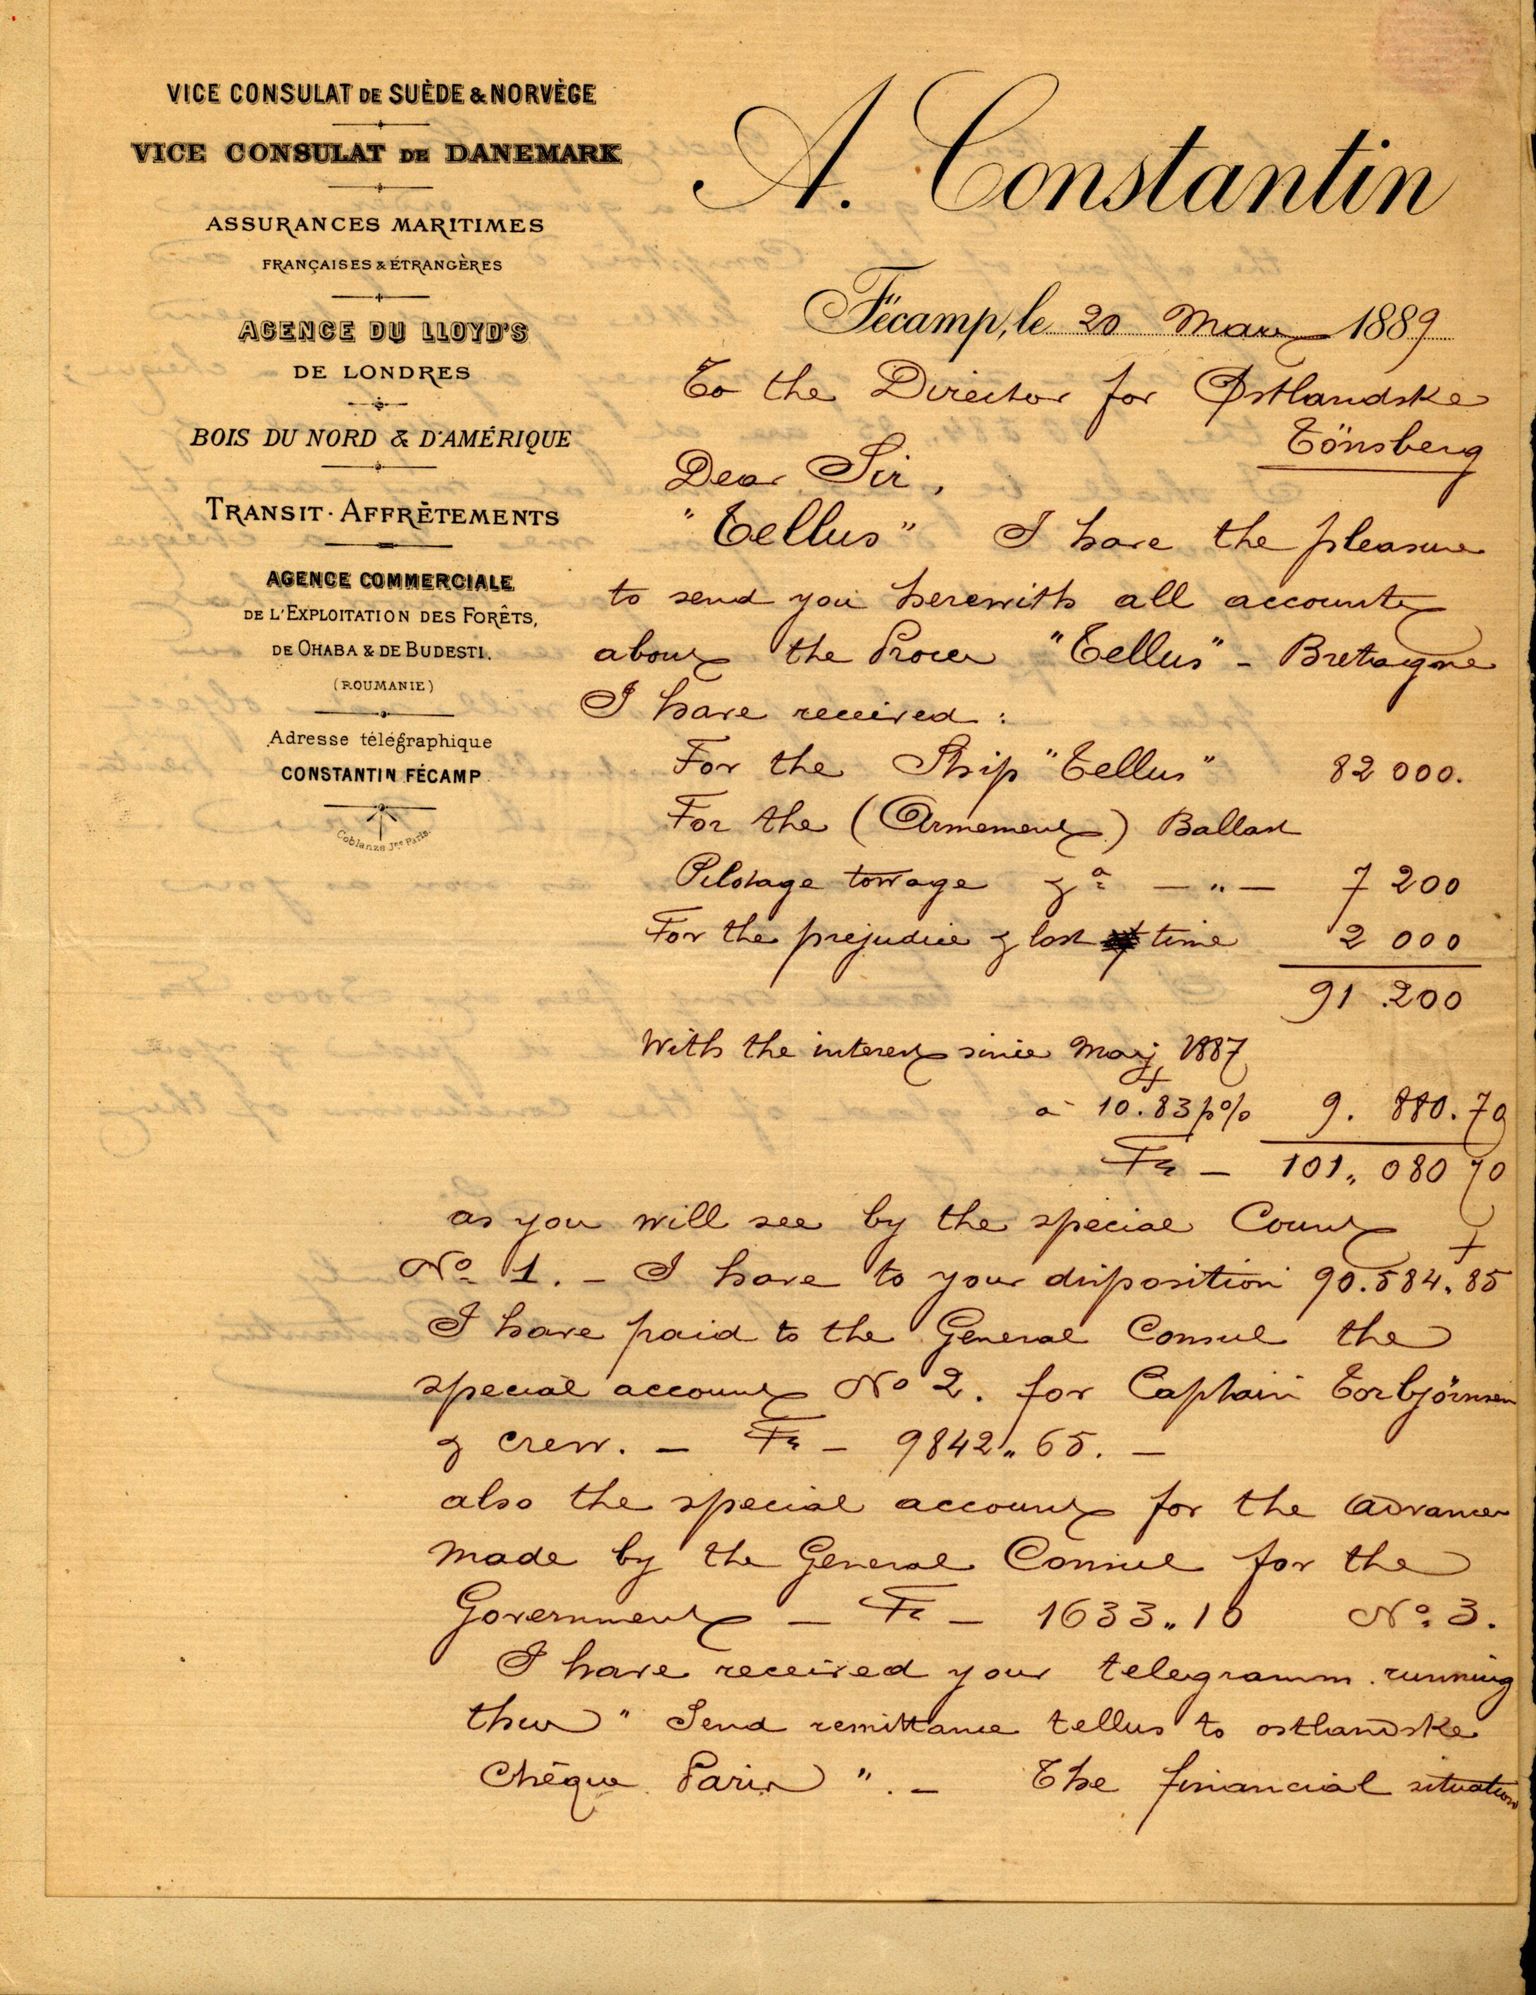 VICE CONSULAT DE SUÈDE & NORVÈGE
VICE CONSULAT DE DANEMARK
ASSURANCES MARITIMES
FRANÇAISES & ÉTRANGÈRES
AGENCE DU LLOYD'S
DE LONDRES
BOIS DU NORD & D'AMÉRIQUE
TRANSIT · AFFRÈTEMENTS
AGENCE COMMERCIALE
DE L'EXPLOITATION DES FORÊTS,
DE OHABA & DE BUDESTI.
(ROUMANIE)
Adresse télégraphique
CONSTANTIN FÉCAMP
Coblanze Jne Paris.
A. Constantin
Fécamp, le 20 Mars 1889
To the Director for Østlandske
Tönsberg
Dear Sir,
"Tellus" I have the pleasure
to send you herewith all accounts
about the Proces "Tellus" - Bretagne
I have received :
For the Ship "Tellus" 82 000.
For the (Armement) Ballast
Pilotage towage &a — " — 7 200
For the prejudice & lost time 2 000
91.200
With the interest since May 1887
a 10.83 p% 9. 880.70
Fr — 101„ 080 70
as you will see by the special Count
No 1. — I have to your disposition 90.584„85
I have paid to the General Consul the
special account No 2. for Captain Torbjörnsen
& crew. — Fr — 9842„65. —
also the special account for the advances
made by the General Consul for the
Government — Fr — 1633„10 No. 3.
I have received your telegramm running
thus " Send remittance tellus to ostlandske
Chêque Paris ". — The financial situation